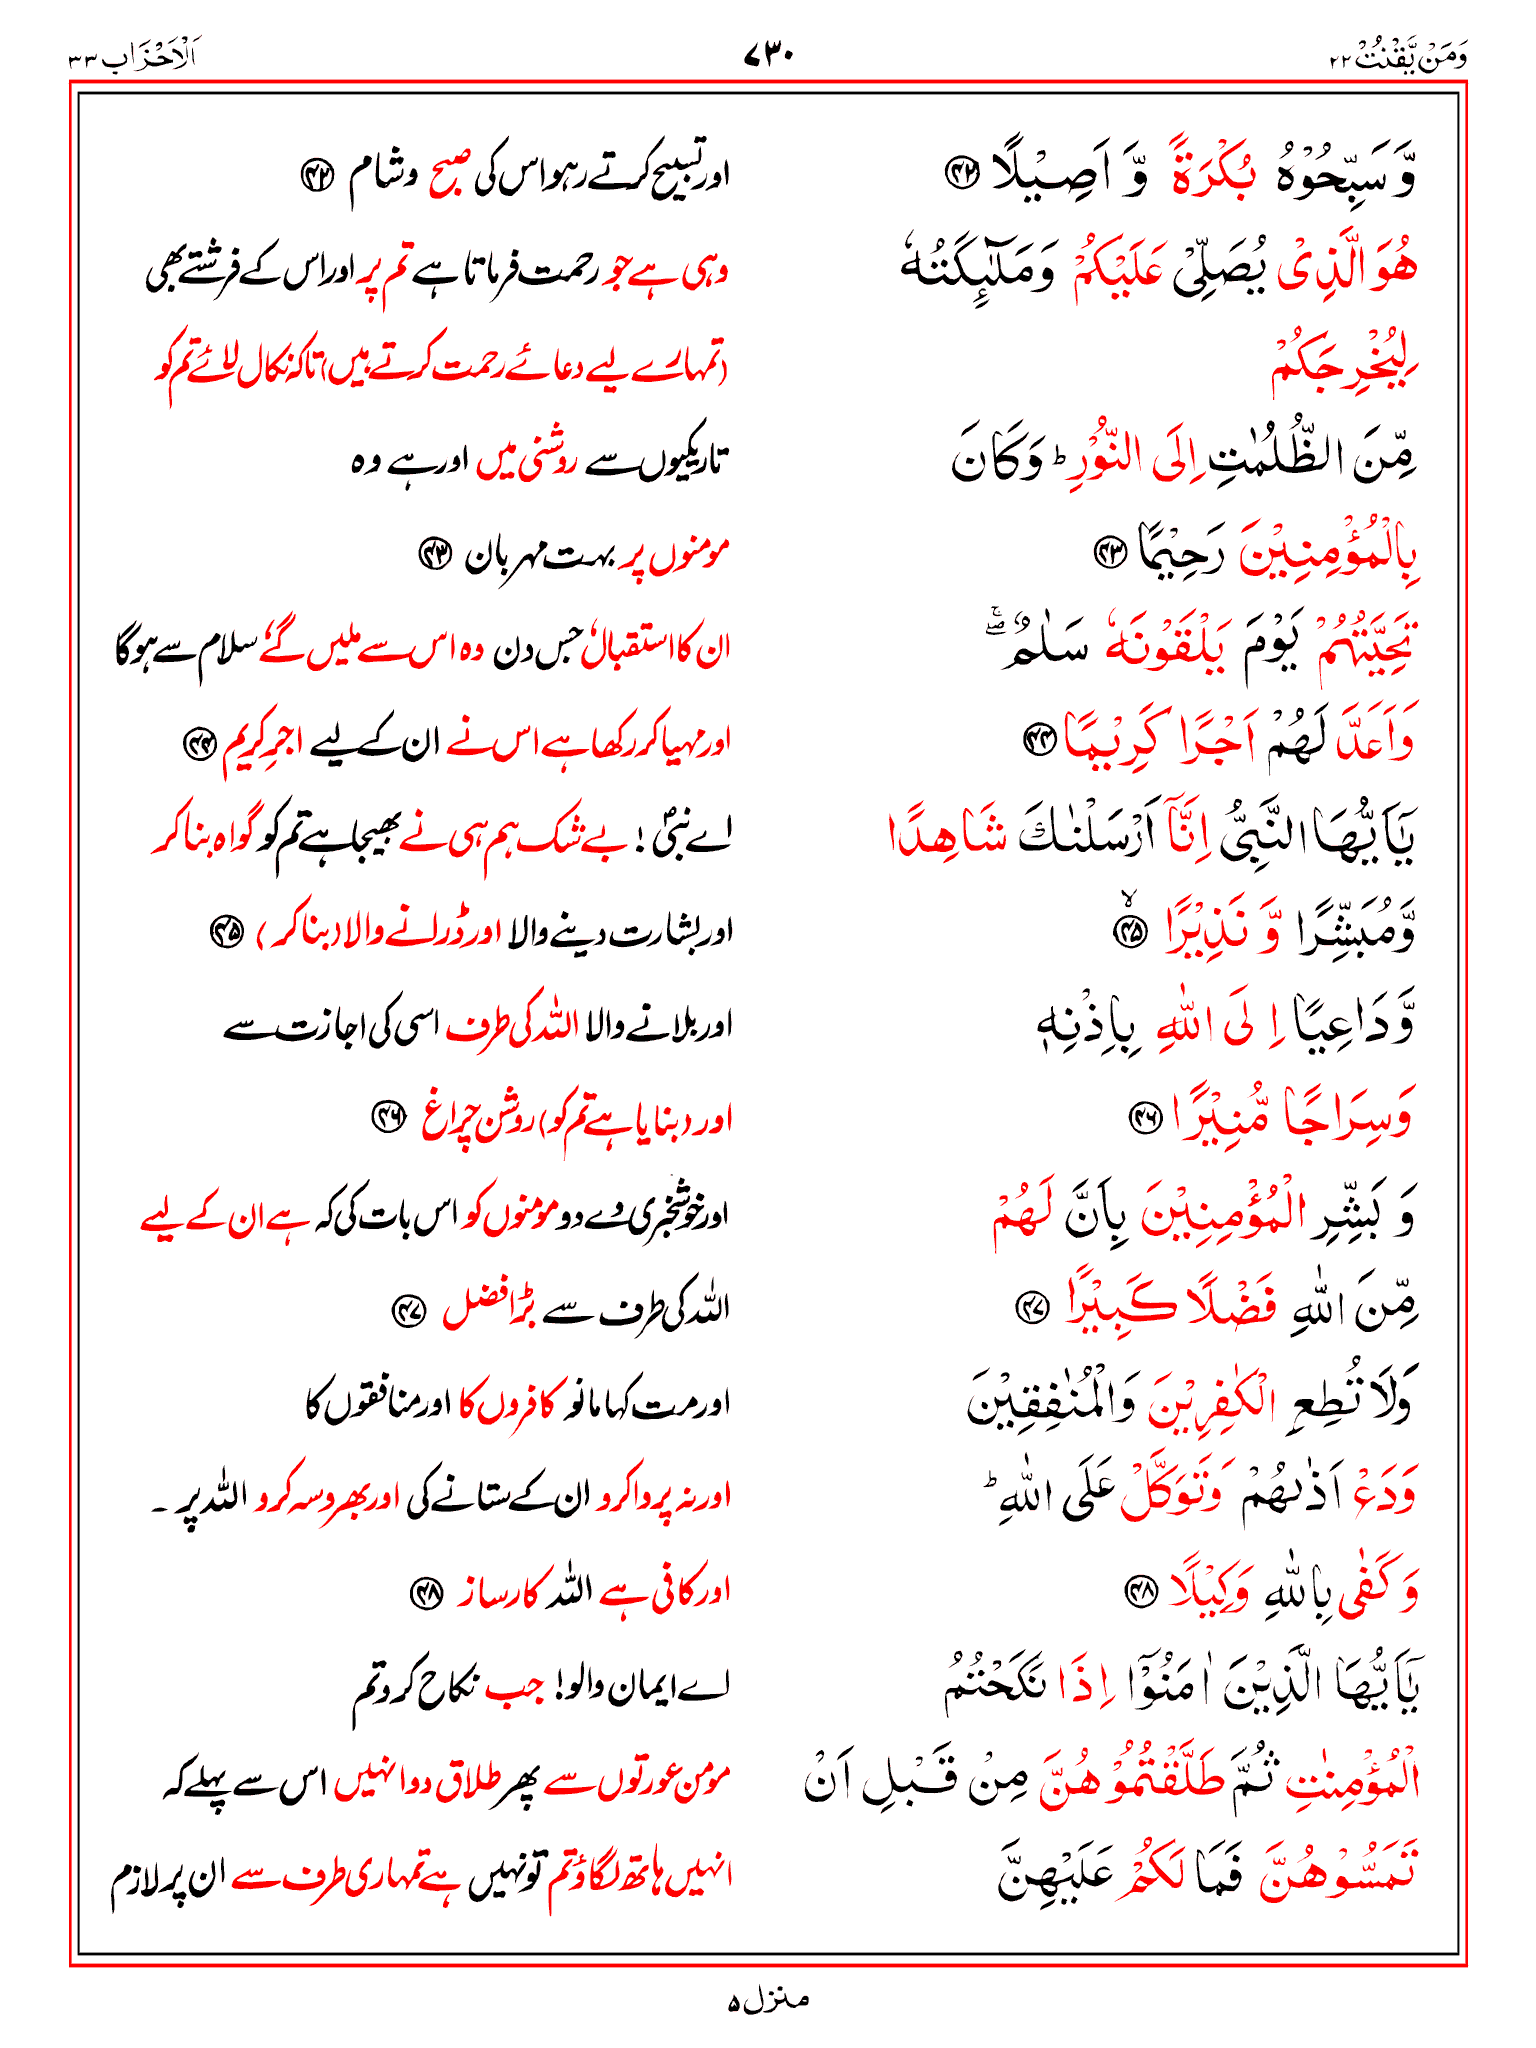 وَمَنْ يَّقْنُتْ ٢٢ ٧٣٠ اَلْاَحْزَاب ٣٣
وَّسَبِّحُوْهُ بُكْرَةً وَّ اَصِيْلًا ﴿۴۲﴾ اور تسبیح کرتے رہو اس کی صبح و شام ﴿۴۲﴾
هُوَ الَّذِىْ يُصَلِّىْ عَلَيْكُمْ وَمَلٰٓئِكَتُهٗ وہی ہے جو رحمت فرماتا ہے تم پر اور اس کے فرشتے بھی
لِيُخْرِجَكُمْ (تمہارے لیے دعائے رحمت کرتے ہیں) تاکہ نکال لائے تم کو
مِّنَ الظُّلُمٰتِ اِلَى النُّوْرِ ؕ وَكَانَ تاریکیوں سے روشنی میں اور ہے وہ
بِالْمُؤْمِنِيْنَ رَحِيْمًا ﴿۴۳﴾ مومنوں پر بہت مہربان ﴿۴۳﴾
تَحِيَّتُهُمْ يَوْمَ يَلْقَوْنَهٗ سَلٰمٌ ۖۚ ان کا استقبال، جس دن وہ اس سے ملیں گے، سلام سے ہوگا
وَاَعَدَّ لَهُمْ اَجْرًا كَرِيْمًا ﴿۴۴﴾ اور مہیا کر رکھا ہے اس نے ان کے لیے اجرِ کریم ﴿۴۴﴾
يٰۤاَيُّهَا النَّبِىُّ اِنَّاۤ اَرْسَلْنٰكَ شَاهِدًا اے نبیؐ ! بے شک ہم ہی نے بھیجا ہے تم کو گواہ بنا کر
وَّمُبَشِّرًا وَّ نَذِيْرًا ﴿۴۵﴾ۙ اور بشارت دینے والا اور ڈرانے والا (بنا کر) ﴿۴۵﴾
وَّدَاعِيًا اِلَى اللّٰهِ بِاِذْنِهٖ اور بلانے والا اللہ کی طرف اسی کی اجازت سے
وَسِرَاجًا مُّنِيْرًا ﴿۴۶﴾ اور (بنایا ہے تم کو) روشن چراغ ﴿۴۶﴾
وَ بَشِّرِ الْمُؤْمِنِيْنَ بِاَنَّ لَهُمْ اور خوشخبری دے دو مومنوں کو اس بات کی کہ ہے ان کے لیے
مِّنَ اللّٰهِ فَضْلًا كَبِيْرًا ﴿۴۷﴾ اللہ کی طرف سے بڑا فضل ﴿۴۷﴾
وَلَا تُطِعِ الْكٰفِرِيْنَ وَالْمُنٰفِقِيْنَ اور مت کہا مانو کافروں کا اور منافقوں کا
وَدَعْ اَذٰىهُمْ وَتَوَكَّلْ عَلَى اللّٰهِ ؕ اور نہ پروا کرو ان کے ستانے کی اور بھروسہ کرو اللہ پر ۔
وَ كَفٰى بِاللّٰهِ وَكِيْلًا ﴿۴۸﴾ اور کافی ہے اللہ کارساز ﴿۴۸﴾
يٰۤاَيُّهَا الَّذِيْنَ اٰمَنُوْۤا اِذَا نَكَحْتُمُ اے ایمان والو! جب نکاح کرو تم
الْمُؤْمِنٰتِ ثُمَّ طَلَّقْتُمُوْهُنَّ مِنْ قَبْلِ اَنْ مومن عورتوں سے پھر طلاق دو انہیں اس سے پہلے کہ
تَمَسُّوْهُنَّ فَمَا لَكُمْ عَلَيْهِنَّ انہیں ہاتھ لگاؤ تم تو نہیں ہے تمہاری طرف سے ان پر لازم
منزل ۵